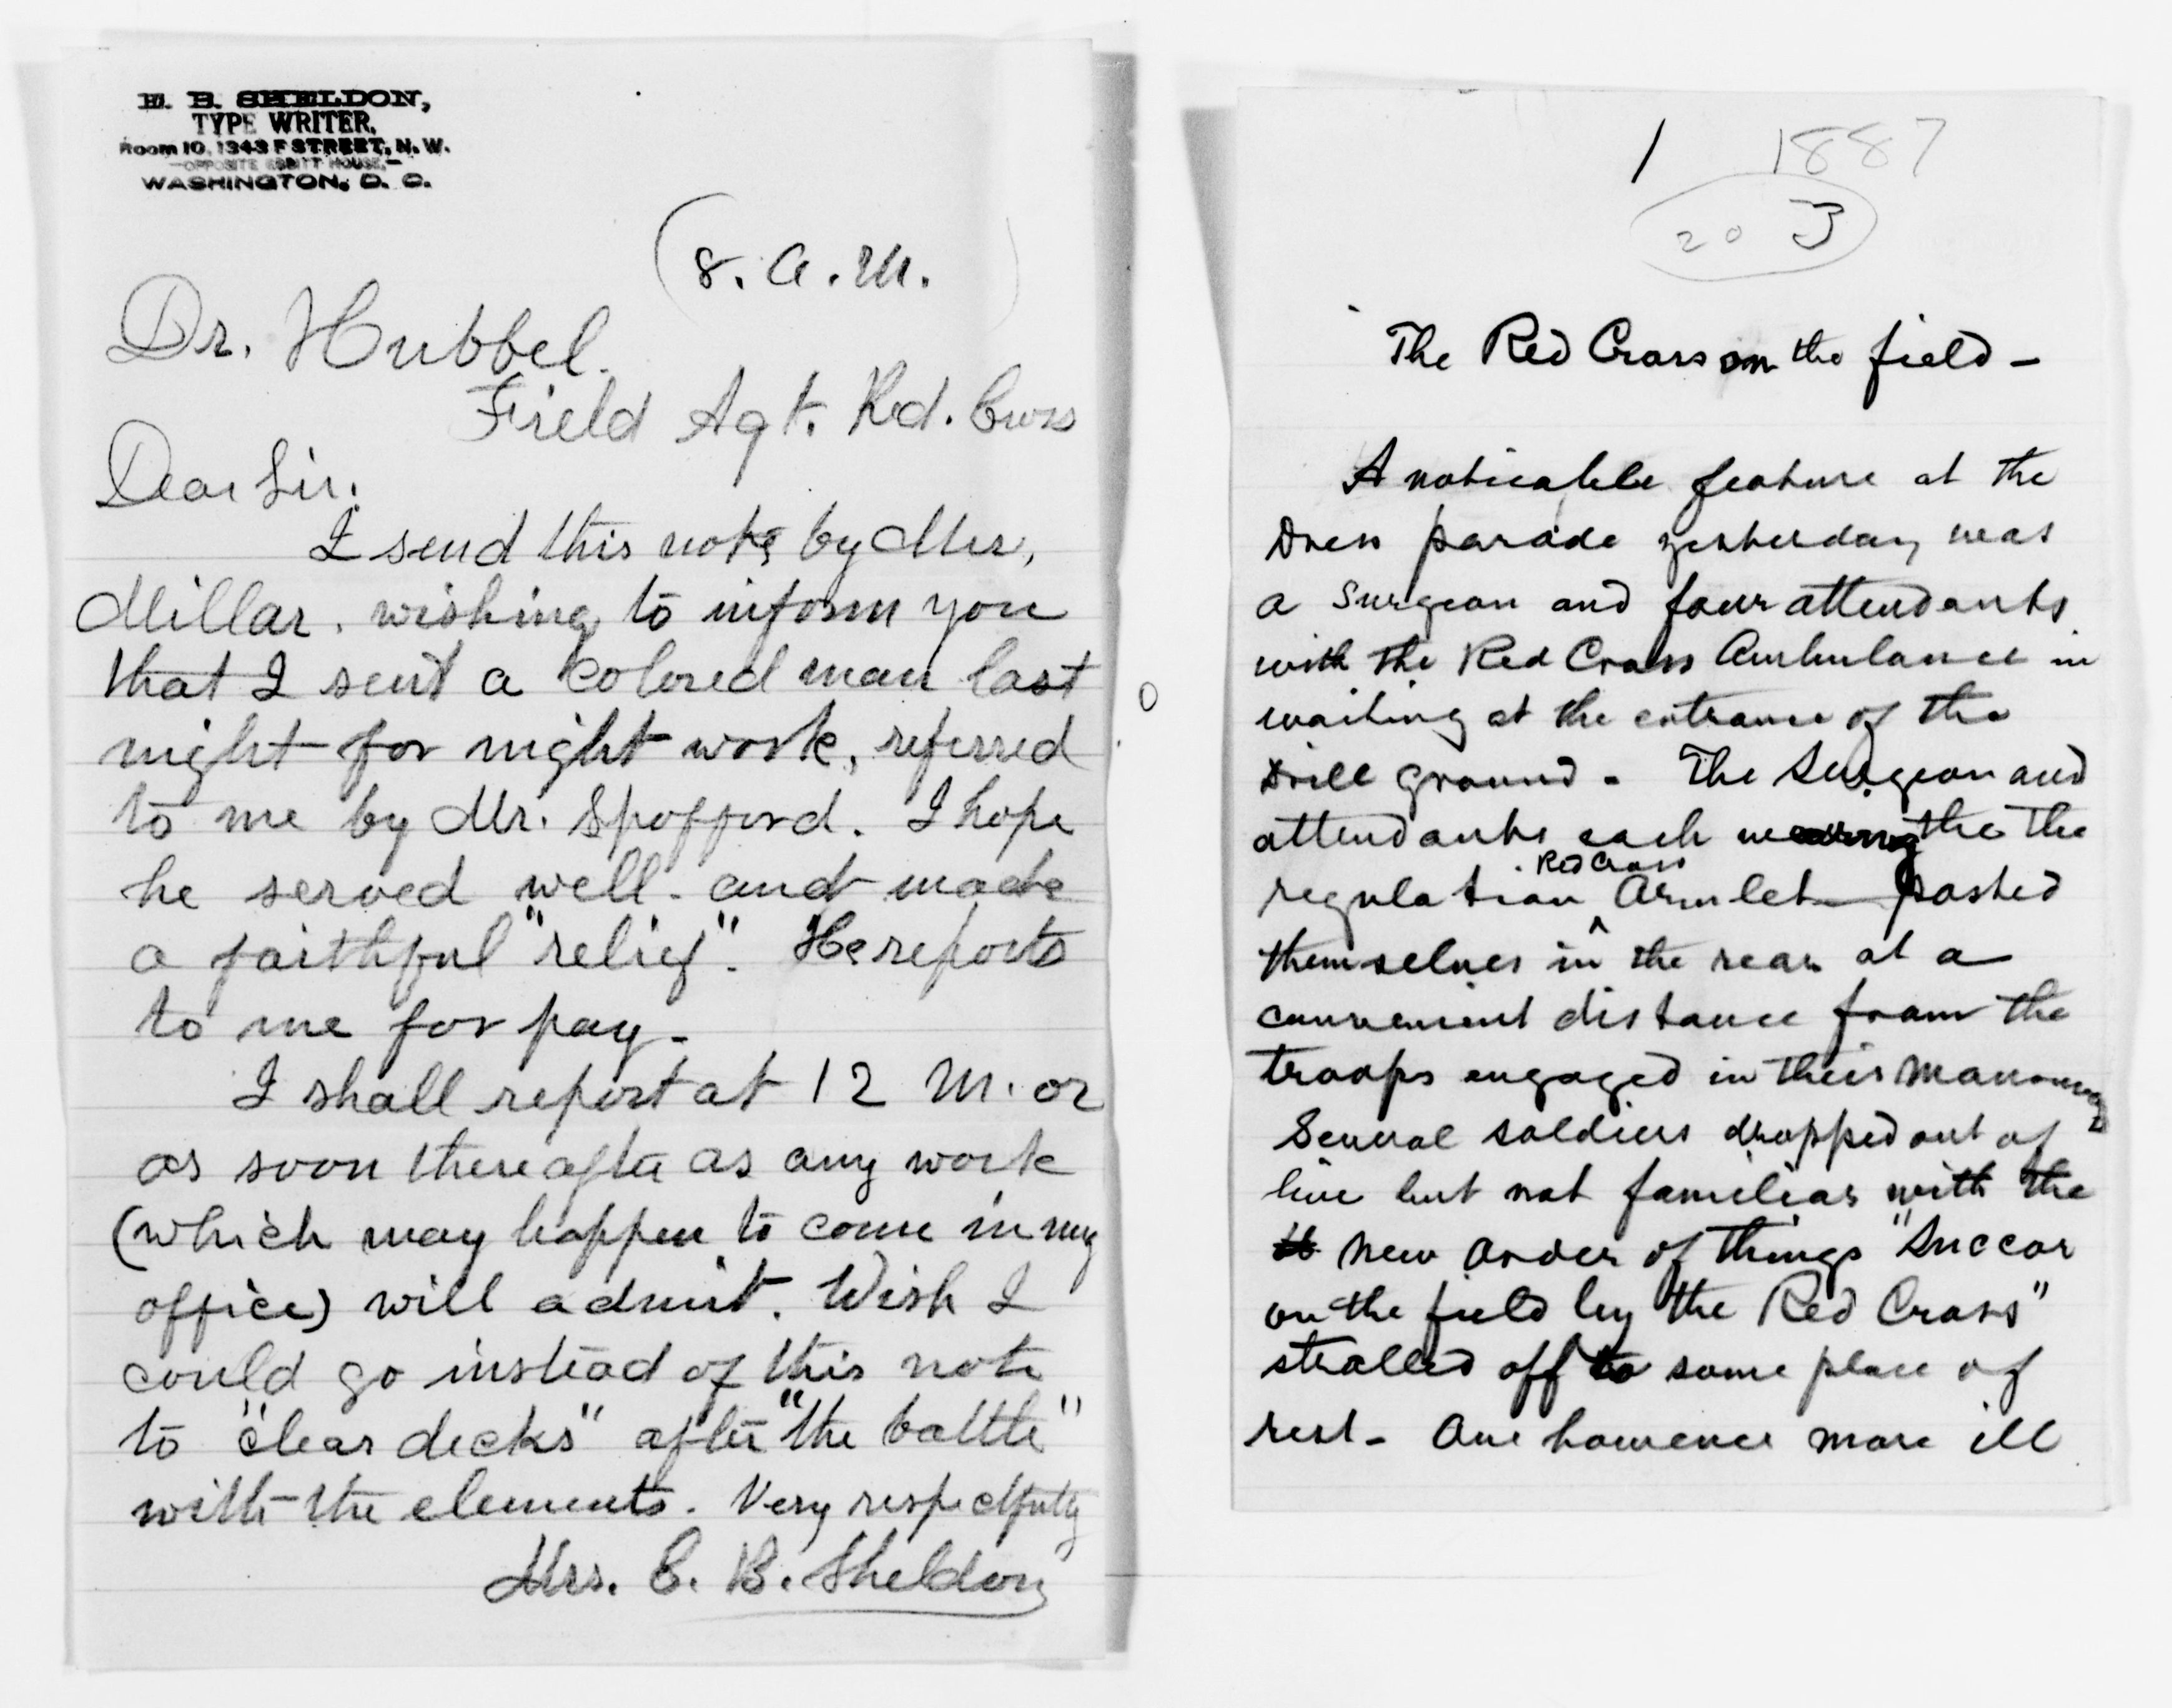 E. B. SHELDON,
TYPE WRITER,
Room 10, 1343 F STREET, N. W.
—OPPOSITE EBBITT HOUSE,—
WASHINGTON, D. C.
(8. A. M.)
Dr. Hubbel.
Field Agt. Red. Cross
Dear Sir.
I send this note by Mr.
Millar. wishing to inform you
that I sent a colored man last
night for night work, referred
to me by Mr. Spofford. I hope
he served well. and made
a faithful "relief". He reports
to me for pay.
I shall report at 12 M. or
as soon thereafter as any work
(which may happen to come in my
office) will admit. Wish I
could go instead of this note
to "clear decks" after "the battle"
with the elements. Very respectfully
Mrs. E. B. Sheldon
1 1887
20 3
The Red Cross on the field -
A noticable feature at the
Dress parade yesterday was
a Surgeon and four attendants
with the Red Cross Ambulance in
waiting at the entrance of the
Drill ground - The Surgeon and
attendants each wearing the the
regulation Red Cross Armlet posted
themselves in the rear at a
convenient distance from the
troops engaged in their
Several soldiers dropped out of
line but not familiar with the
new order of things "Succor
on the field by the Red Cross"
strolled off to some place of
rest - One however more ill